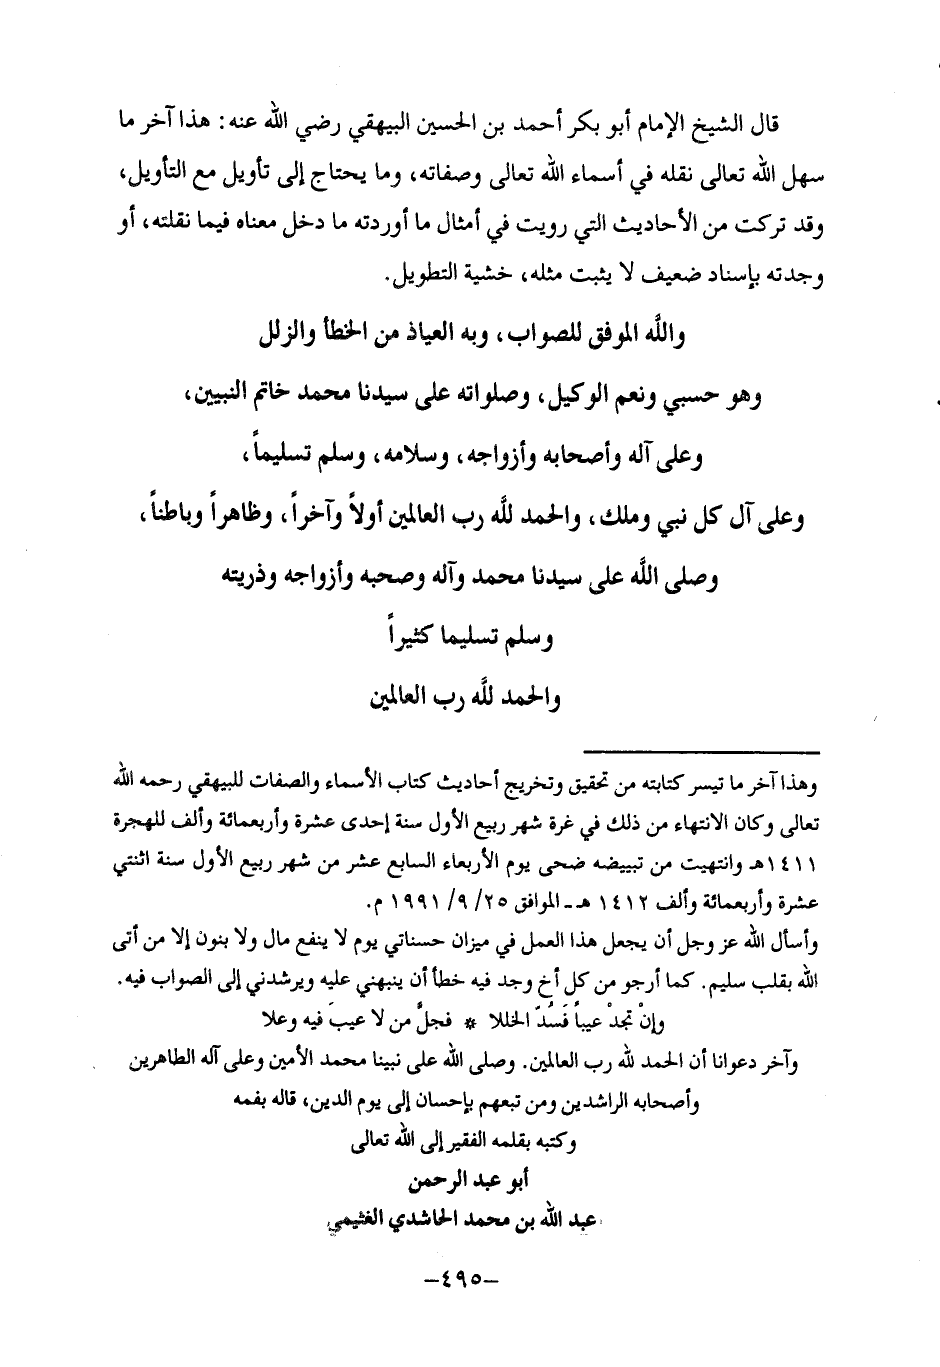 قال الشيخ الإمام أبو بكر أحمد بن الحسين البيهقي رضي الله عنه: هذا آخر ما
سهل الله تعالى نقله في أسماء الله تعالى وصفاته، وما يحتاج إلى تأويل مع التأويل،
وقد تركت من الأحاديث التي رويت في أمثال ما أوردته ما دخل معناه فيما نقلته، أو
وجدته بإسناد ضعيف لا يثبت مثله، خشية التطويل.
واللَّه الموفق للصواب، وبه العياذ من الخطأ والزلل
وهو حسبي ونعم الوكيل، وصلواته على سيدنا محمد خاتم النبيين،
وعلى آله وأصحابه وأزواجه، وسلامه، وسلم تسليماً،
وعلى آل كل نبي وملك، والحمد للَّه رب العالمين أولاً وآخراً، وظاهراً وباطناً،
وصلى اللَّه على سيدنا محمد وآله وصحبه وأزواجه وذريته
وسلم تسليما كثيراً
والحمد للَّه رب العالمين
وهذا آخر ما تيسر كتابته من تحقيق وتخريج أحاديث كتاب الأسماء والصفات للبيهقي رحمه الله
تعالى وكان الانتهاء من ذلك في غرة شهر ربيع الأول سنة إحدى عشرة وأربعمائة وألف للهجرة
١٤١١هـ وانتهيت من تبييضه ضحى يوم الأربعاء السابع عشر من شهر ربيع الأول سنة اثنتي
عشرة وأربعمائة وألف ١٤١٢ هـ ـ الموافق ٢٥/ ٩/ ١٩٩١ م.
وأسأل الله عز وجل أن يجعل هذا العمل في ميزان حسناتي يوم لا ينفع مال ولا بنون إلا من أتى
الله بقلب سليم. كما أرجو من كل أخ وجد فيه خطأ أن ينبهني عليه ويرشدني إلى الصواب فيه.
وإنْ تجدْ عيباً فَسُدّ الخللا * فجلَّ من لا عيبَ فيه وعلا
وآخر دعوانا أن الحمد لله رب العالمين. وصلى الله على نبينا محمد الأمين وعلى آله الطاهرين
وأصحابه الراشدين ومن تبعهم بإحسان إلى يوم الدين، قاله بفمه
وكتبه بقلمه الفقير إلى الله تعالى
أبو عبد الرحمن
عبد الله بن محمد الحاشدي الغثيمي
–٤٩٥–